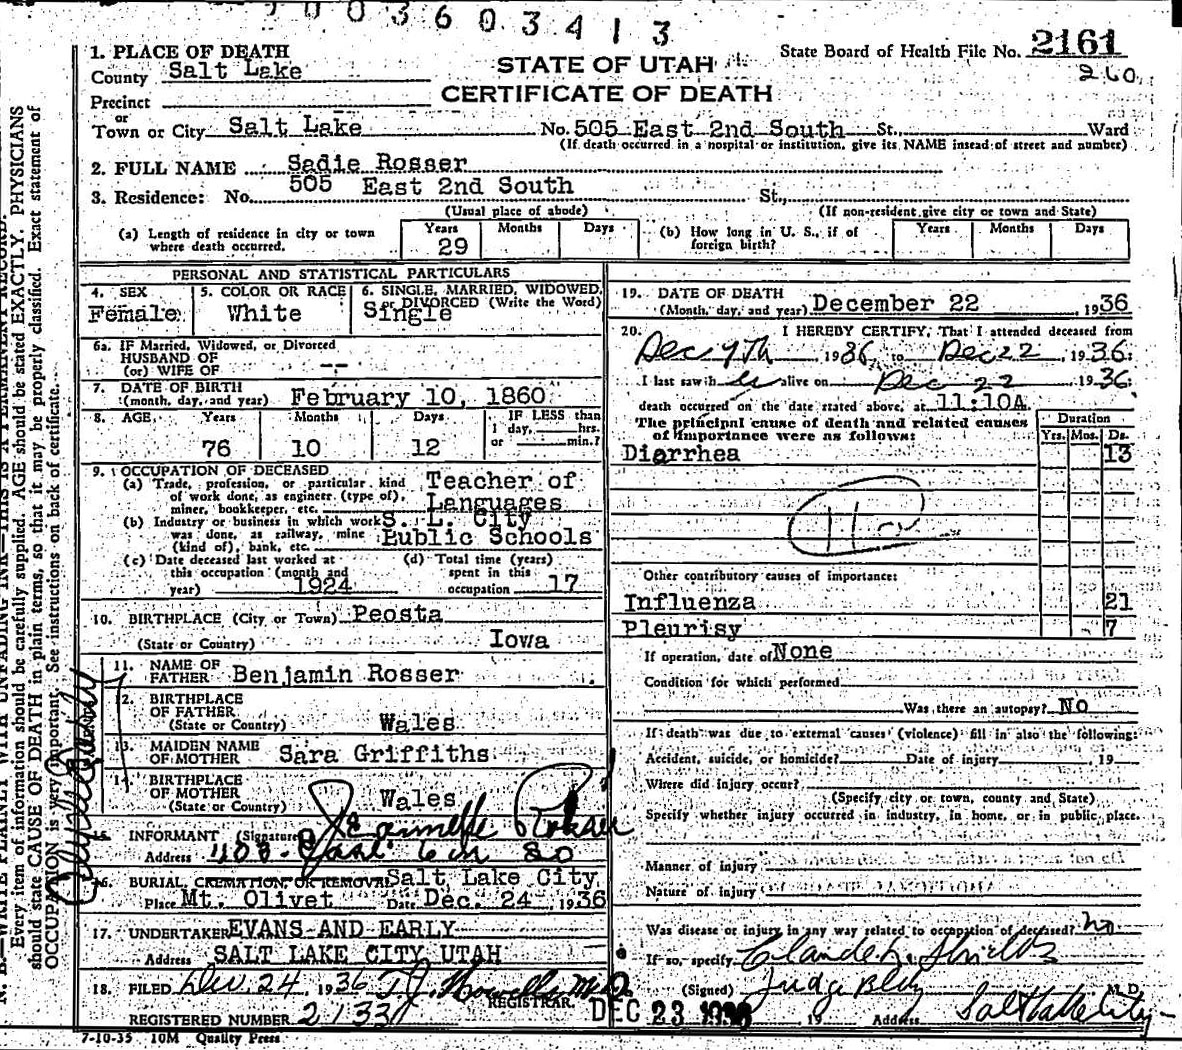 0 0 3 6 0 3 4 1 3
1. PLACE OF DEATH
County Salt Lake
Precinct
or
Town or City Salt Lake
State Board of Health File No. 2161
260
STATE OF UTAH
CERTIFICATE OF DEATH
No. 505 East 2nd South St., Ward
(If death occurred in a hospital or institution, give its NAME insead of street and number)
2. FULL NAME Sadie Rosser
3. Residence: No. 505 East 2nd South St.,
(Usual place of abode) (If non-resident give city or town and State)
(a) Length of residence in city or town where death occurred. Years 29 Months Days
(b) How long in U. S., if of foreign birth? Years Months Days
PERSONAL AND STATISTICAL PARTICULARS
4. SEX Female
5. COLOR OR RACE White
6. SINGLE, MARRIED, WIDOWED, or DIVORCED (Write the Word) Single
6a. IF Married, Widowed, or Divorced
HUSBAND OF
(or) WIFE OF --
7. DATE OF BIRTH
(month, day, and year) February 10, 1860
8. AGE Years 76 Months 10 Days 12 IF LESS than 1 day, hrs. or min.?
9. OCCUPATION OF DECEASED
(a) Trade, profession, or particular kind of work done, as engineer (type of), miner, bookkeeper, etc. Teacher of Languages
(b) Industry or business in which work was done, as railway, mine (kind of), bank, etc. S. L. City Public Schools
(c) Date deceased last worked at this occupation (month and year) 1924
(d) Total time (years) spent in this occupation 17
10. BIRTHPLACE (City or Town) Peosta
(State or Country) Iowa
11. NAME OF FATHER Benjamin Rosser
12. BIRTHPLACE OF FATHER (State or Country) Wales
13. MAIDEN NAME OF MOTHER Sara Griffiths
14. BIRTHPLACE OF MOTHER (State or Country) Wales
15. INFORMANT (Signature) Jeannette Rosser
Address
16. BURIAL, CREMATION, OR REMOVAL Salt Lake City
Place Mt. Olivet Date Dec. 24, 1936
17. UNDERTAKER EVANS AND EARLY
Address SALT LAKE CITY UTAH
18. FILED Dec. 24, 1936 T.J. Howells M.D.
REGISTRAR.
REGISTERED NUMBER 2133
7-10-35 10M Quality Press
19. DATE OF DEATH
(Month, day, and year) December 22, 1936
20. I HEREBY CERTIFY, That I attended deceased from
Dec 9th 1936, to Dec 22, 1936.
I last saw her alive on Dec 22 1936.
death occurred on the date stated above, at 11:10A.
The principal cause of death and related causes of importance were as follows:
Duration
Yrs. Mos. Ds.
Diarrhea 13
Other contributory causes of importance:
Influenza 21
Pleurisy 7
If operation, date of None
Condition for which performed
Was there an autopsy? No
If death was due to external causes (violence) fill in also the following:
Accident, suicide, or homicide? Date of injury , 19
Where did injury occur?
(Specify city or town, county and State)
Specify whether injury occurred in industry, in home, or in public place.
Manner of injury
Nature of injury
Was disease or injury in any way related to occupation of deceased? no
If so, specify
(Signed) Claude L. Shields M. D.
DEC 23 1936 19 Address Judge Bldg Salt Lake City
N. B.—WRITE PLAINLY WITH UNFADING INK—THIS IS A PERMANENT RECORD.
Every item of information should be carefully supplied. AGE should be stated EXACTLY. PHYSICIANS
should state CAUSE OF DEATH in plain terms, so that it may be properly classified. Exact statement of
OCCUPATION is very important. See instructions on back of certificate.